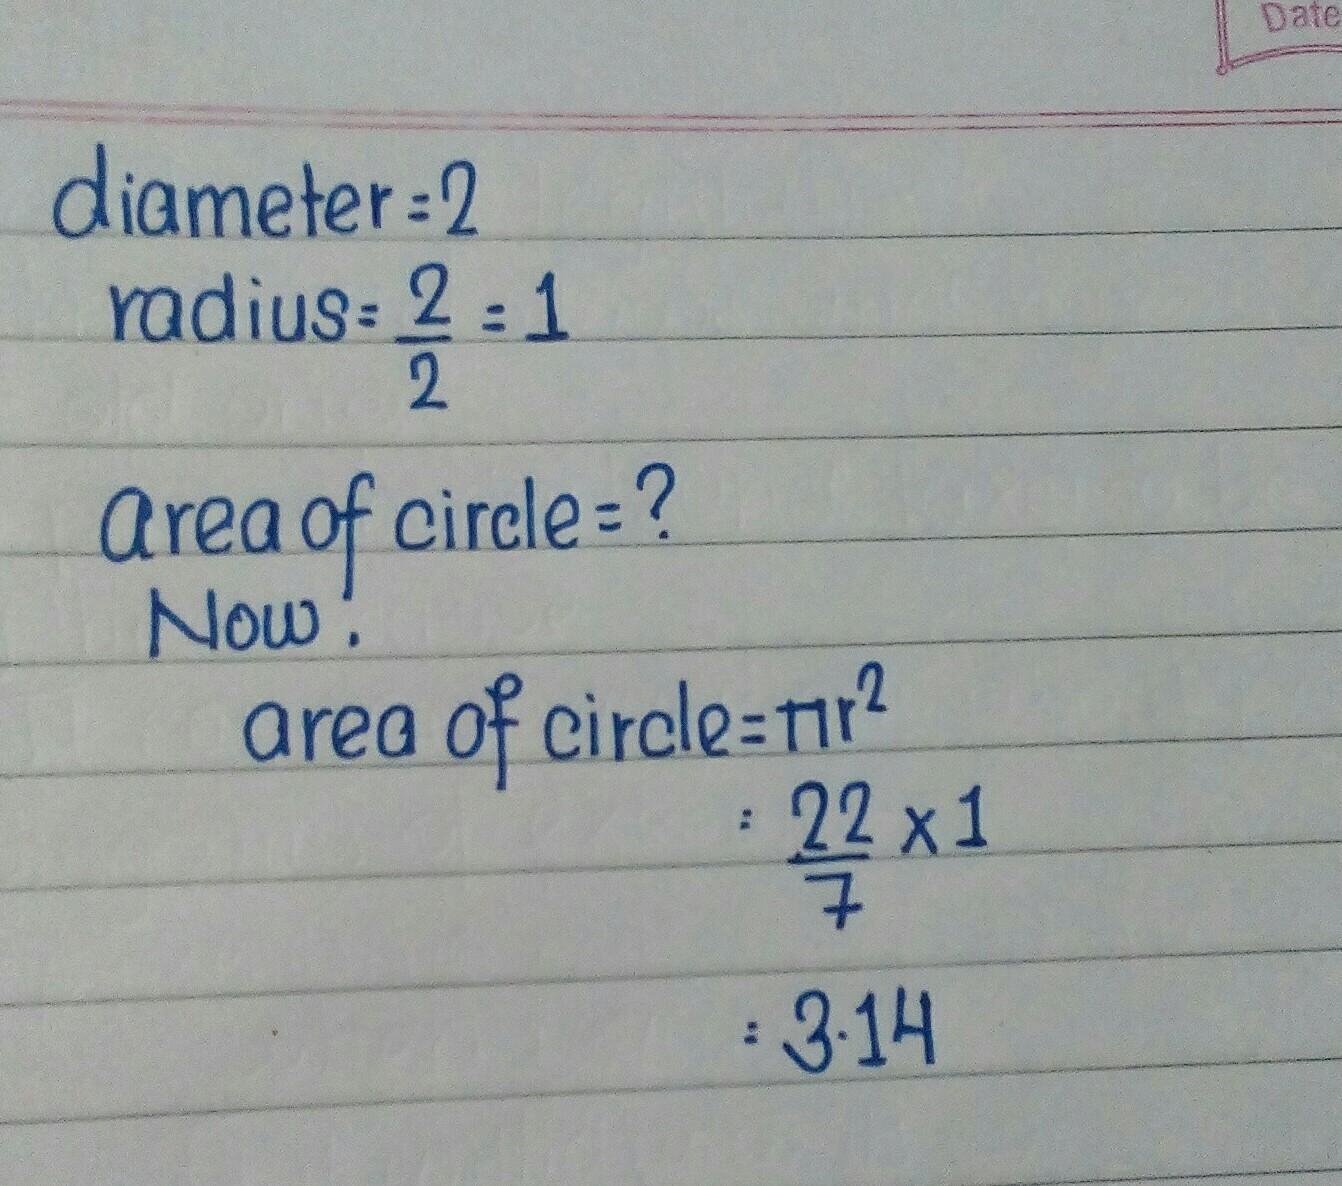 Date
diameter=2
radius=2/2=1
area of circle=?
Now:
area of circle=πr²
=22/7 x 1
=3.14